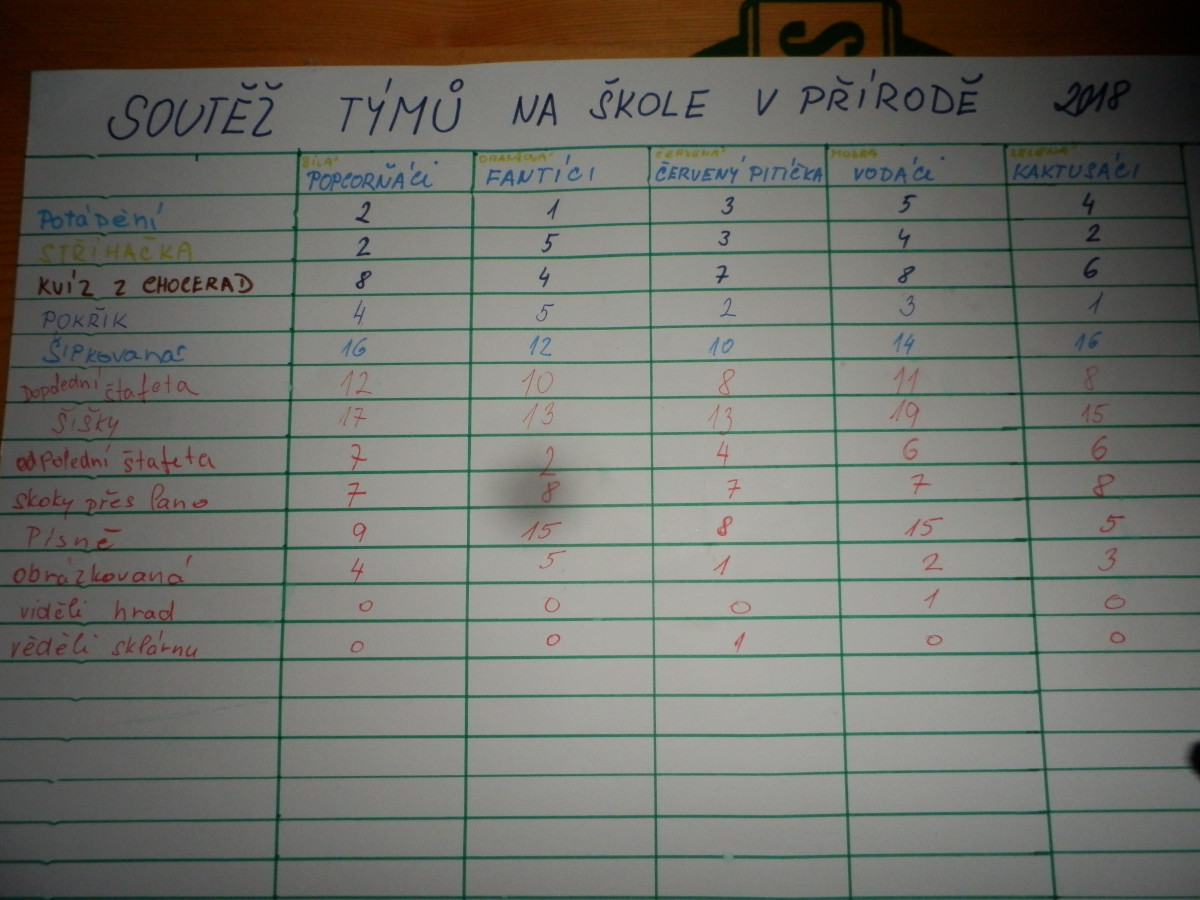 S
SOUTĚŽ TÝMŮ NA ŠKOLE V PŘÍRODĚ 2018
BÍLÁ ORANŽOVÁ ČERVENÁ MODRÁ ZELENÁ
POPCORŇÁCI FANTÍCI ČERVENÝ PITÍČKA VODÁCI KAKTUSÁCI
Potápění 2 1 3 5 4
STŘÍHAČKA 2 5 3 4 2
KVÍZ Z CHOCERAD 8 4 7 8 6
POKŘIK 4 5 2 3 1
Šipkovaná 16 12 10 14 16
Dopolední štafeta 12 10 8 11 8
ŠIŠKY 17 13 13 19 15
odpolední štafeta 7 2 4 6 6
skoky přes lano 7 8 7 7 8
Písně 9 15 8 15 5
obrázkovaná 4 5 1 2 3
viděli hrad 0 0 0 1 0
věděli sklárnu 0 0 1 0 0